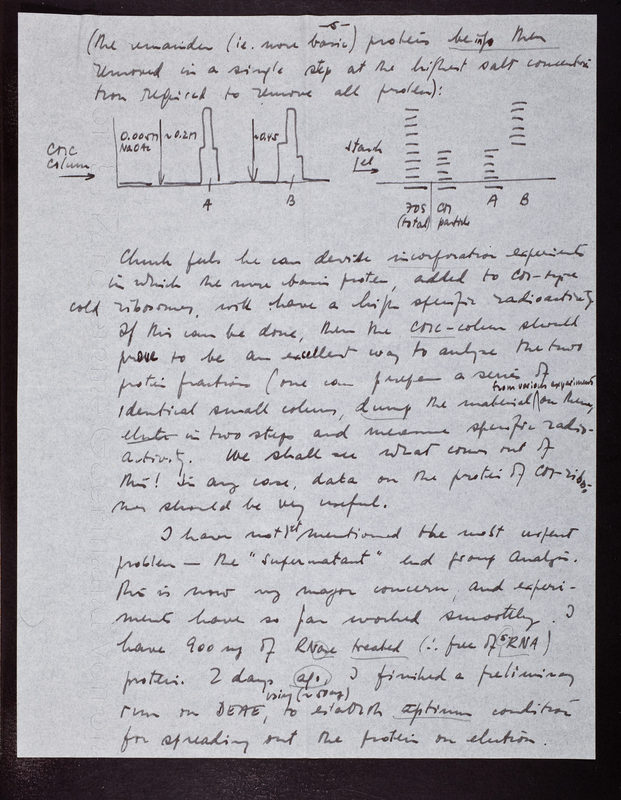 -5-
(the remainder (i.e. more basic) proteins being then
removed in a single step at the highest salt concentra-
tion required to remove all protein):
CMC column
0.005M NaOAc
~0.2M
~0.45
A
B
starch gel
70S (total)
CM particle
A
B
Chuck feels he can devise incorporation experiments
in which the more basic protein, added to CM-type
cold ribosomes, will have a high specific radioactivity.
If this can be done, then the CMC-column should
prove to be an excellent way to analyze the two
protein fractions (one can prepare a series of
identical small columns, dump the material from various experiments on them,
elute in two steps and measure specific radio-
activity. We shall see what comes out of
this! In any case, data on the protein of CM-ribo-
somes should be very useful.
I have not yet mentioned the most urgent
problem — the "supernatant" end group analysis.
This is now my major concern, and experi-
ments have so far worked smoothly. I
have 900 mg of RNase treated (∴ free of sRNA)
protein. 2 days ago, I finished a preliminary
run on DEAE, using (~50mg) to establish optimum condition
for spreading out the protein on elution.